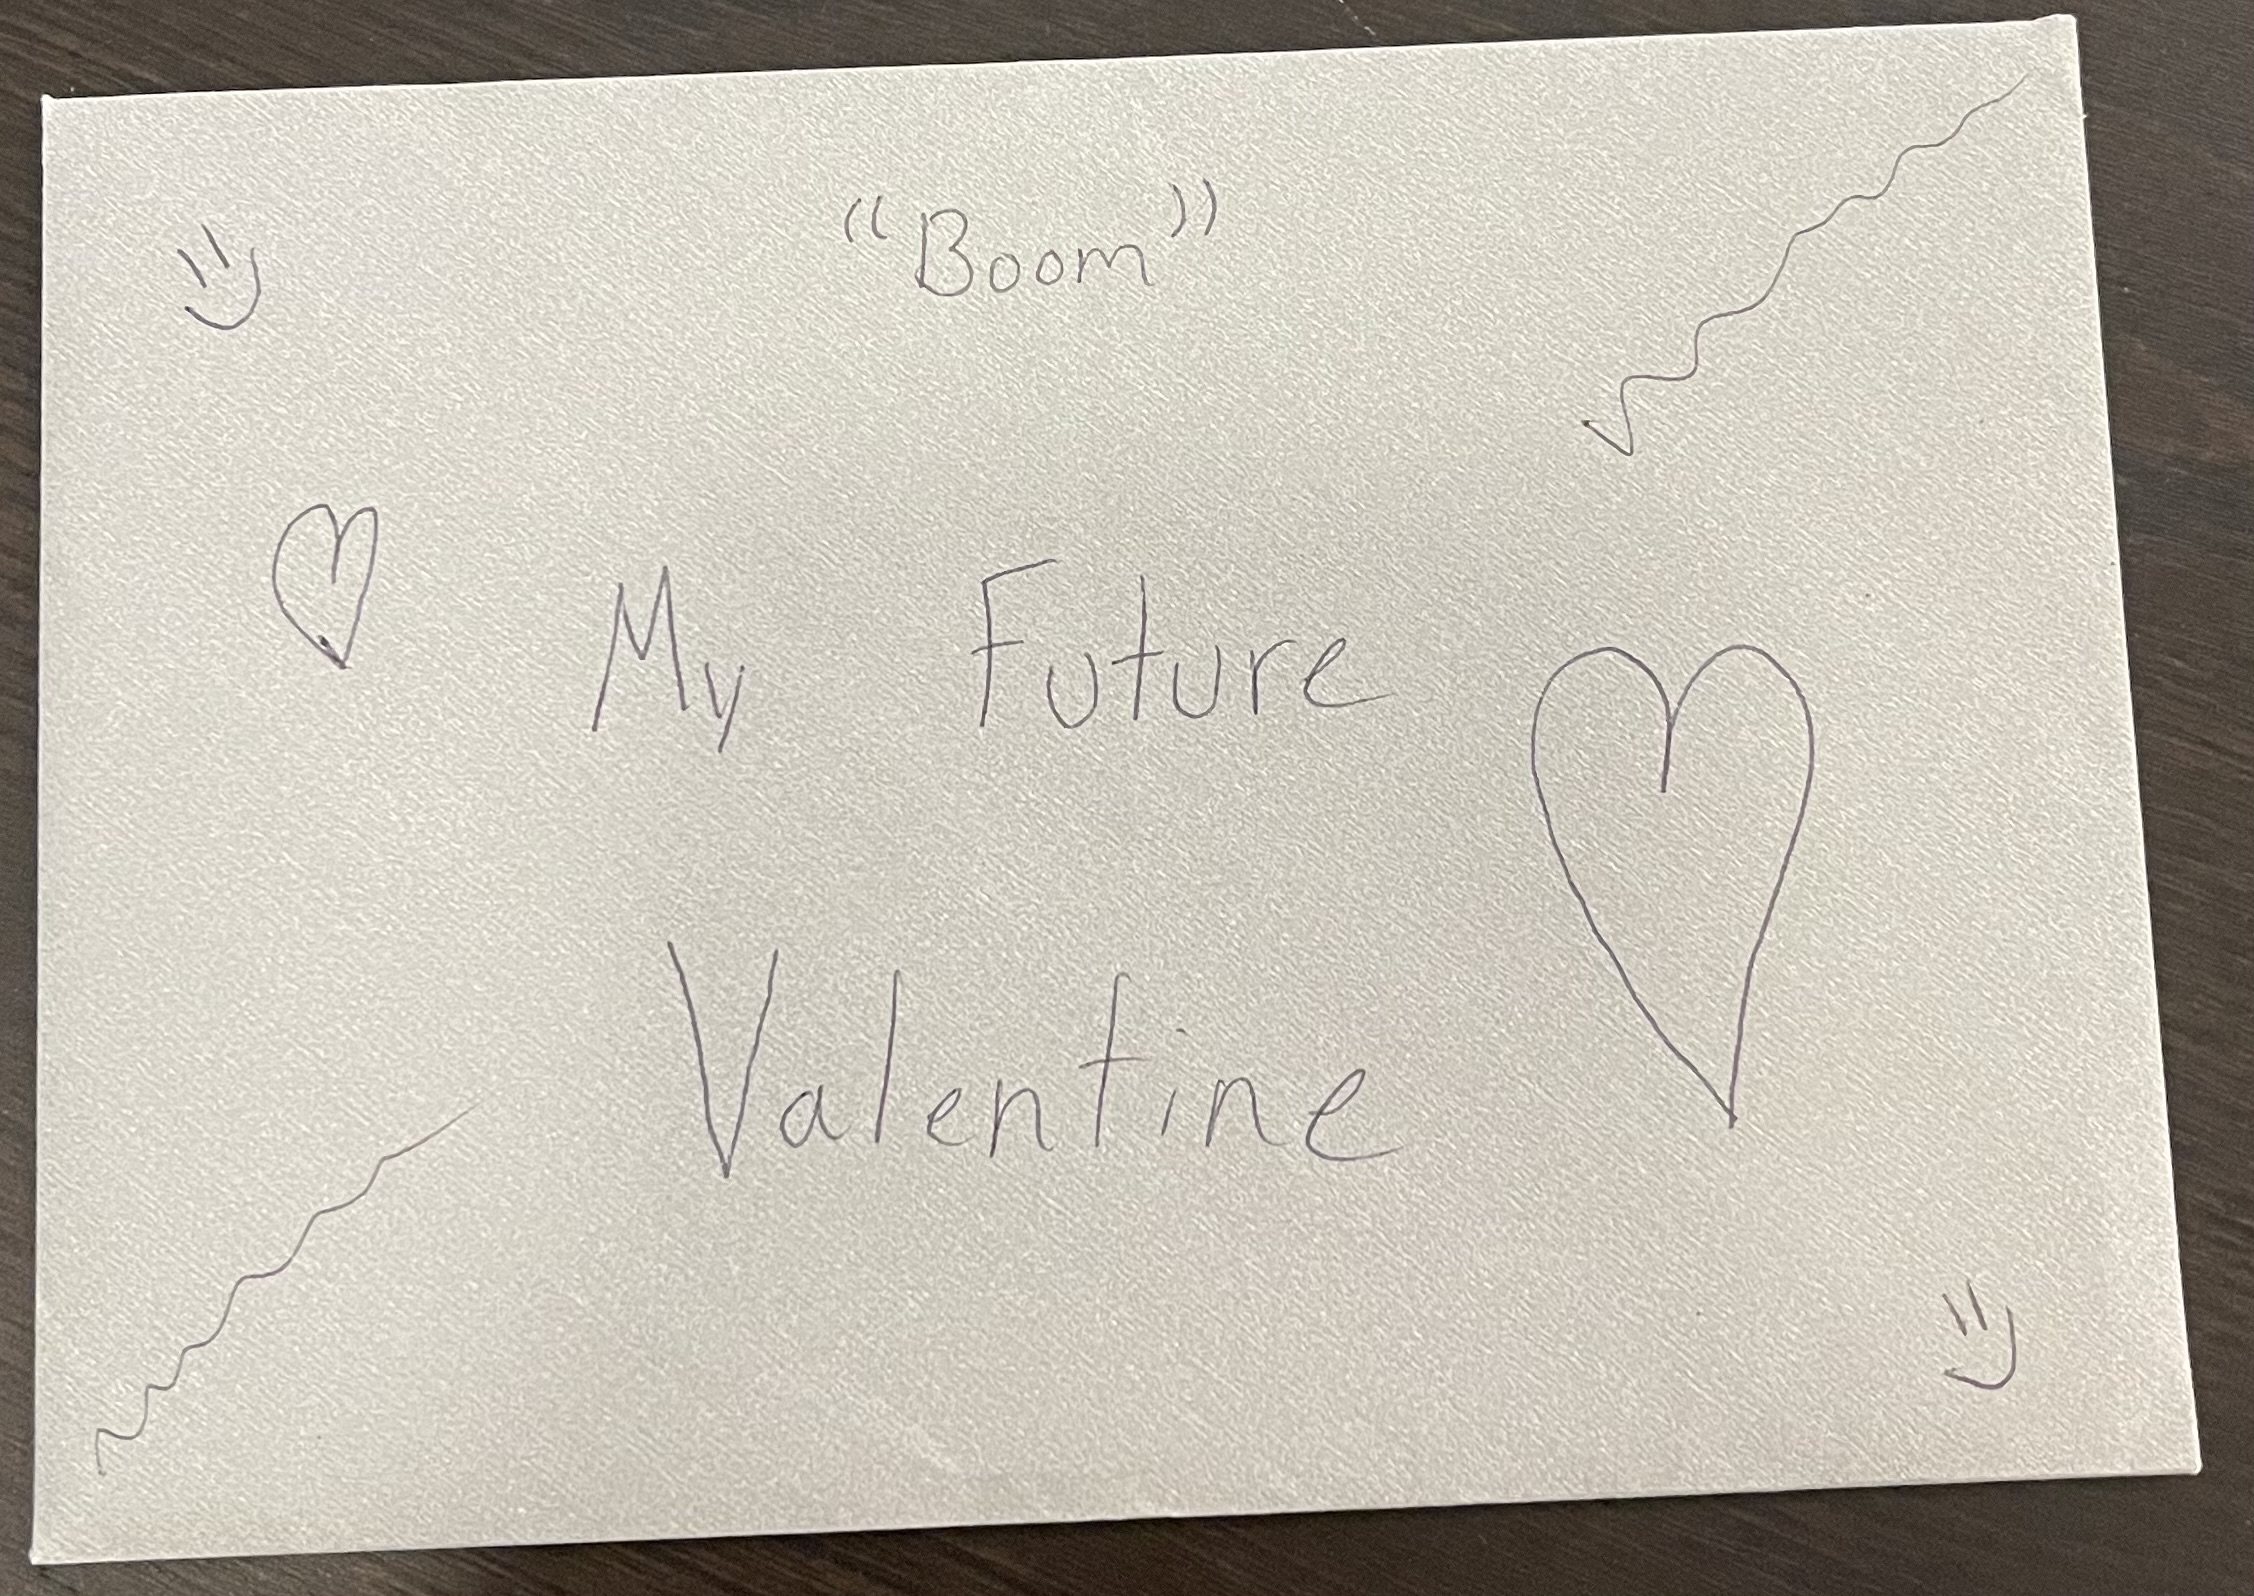 "Boom"
My Future
Valentine